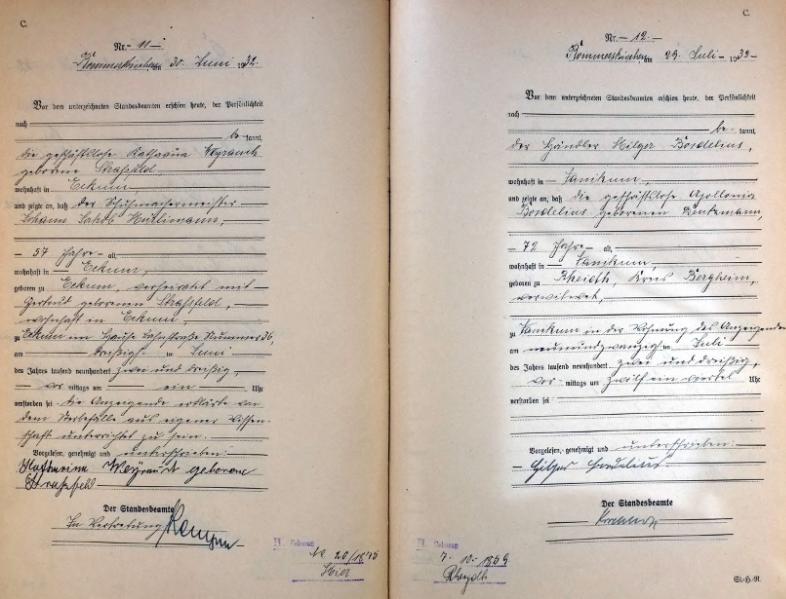 C.
Nr. 11
Rommerskirchen, am 30. Juni 1932.
Vor dem unterzeichneten Standesbeamten erschien heute, der Persönlichkeit
nach
be kannt,
die geschäftslose Katharina Weyrauch
geborene Straßfeld
wohnhaft in Eckum
und zeigte an, daß der Schuhmachermeister
Johann Jakob
57 Jahre alt,
wohnhaft in Eckum,
geboren zu Eckum, verheiratet mit
Gertrud geborenen Straßfeld,
wohnhaft in Eckum,
zu Eckum im Hause Bahnstraße Nummer 36,
am dreißig ten Juni
des Jahres tausend neunhundert zwei und dreißig,
vor mittags um ein Uhr
verstorben sei. Die Anzeigende erklärte von
dem Sterbefalle aus eigener Wissen-
schaft unterrichtet zu sein.
Vorgelesen, genehmigt und unterschrieben:
Katharina Weyrauch geborene
Straßfeld
Der Standesbeamte
In Vertretung
C.
Nr. 12.
Rommerskirchen, am 29. Juli 1932
Vor dem unterzeichneten Standesbeamten erschien heute, der Persönlichkeit
nach
be kannt,
der Händler Hilger Bordelius,
wohnhaft in Vanikum,
und zeigte an, daß die geschäftslose Apollonia
Bordelius geborenen
72 Jahre alt,
wohnhaft in Vanikum,
geboren zu Rheidt, Kreis Bergheim,
verwitwet,
zu Vanikum in der Wohnung des Anzeigenden
am neunundzwanzig ten Juli
des Jahres tausend neunhundert zwei und dreißig,
vor mittags um zwölf ein viertel Uhr
verstorben sei
Vorgelesen, genehmigt und unterschrieben:
Hilger Bordelius
Der Standesbeamte
St.-H.-R.